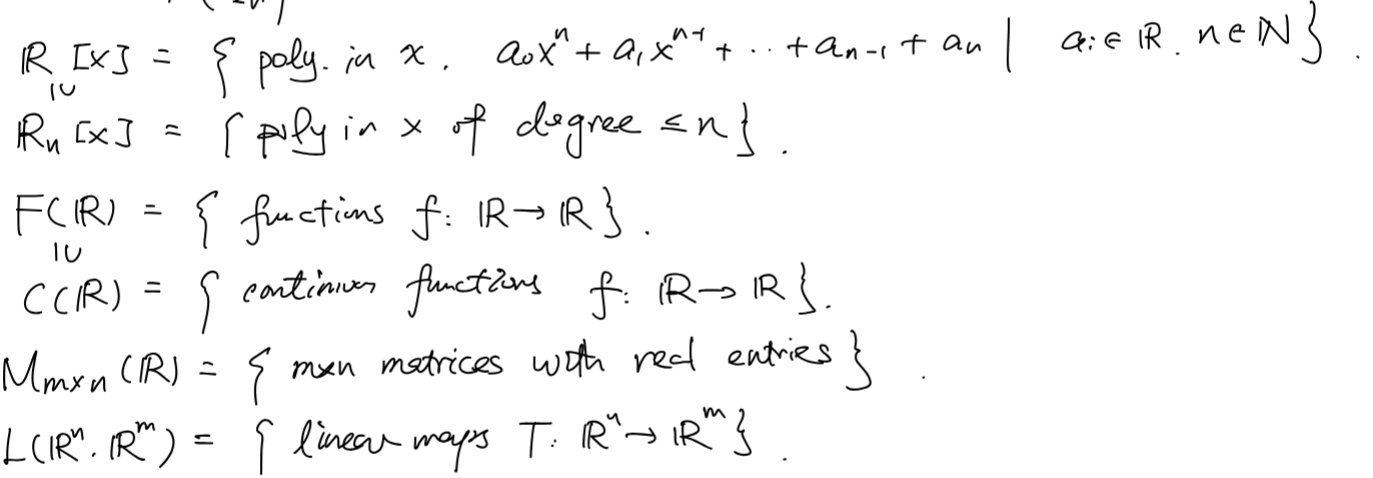 ℝ[x] = { poly. in x. a₀xⁿ + a₁xⁿ⁻¹ + ·· + aₙ₋₁ + aₙ | aᵢ ∈ ℝ. n ∈ ℕ }.
∪ı
ℝₙ[x] = { poly in x of degree ≤ n }.
F(ℝ) = { functions f: ℝ → ℝ }.
∪ı
C(ℝ) = { continuous functions f: ℝ → ℝ }.
Mₘₓₙ(ℝ) = { m×n matrices with real entries }.
L(ℝⁿ. ℝᵐ) = { linear maps T: ℝⁿ → ℝᵐ }.